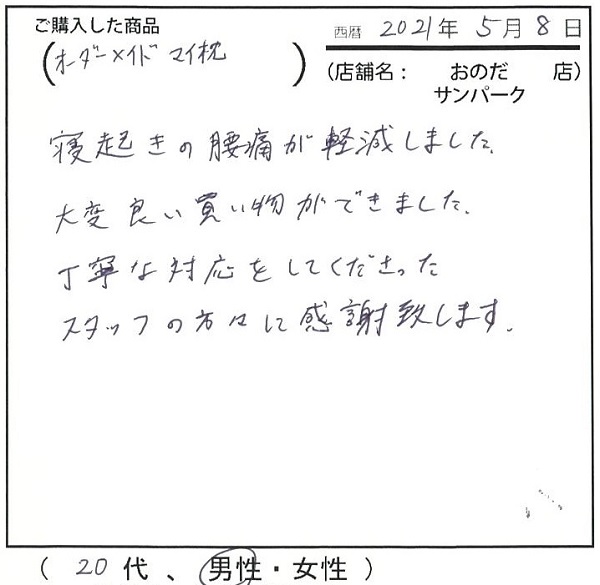 ご購入した商品
西暦 2021年 5月 8日
(オーダーメイド マイ枕)
(店舗名： おのだサンパーク 店)
寝起きの腰痛が軽減しました。
大変良い買い物ができました。
丁寧な対応をしてくださった
スタッフの方々に感謝致します。
( 20代、男性・女性 )